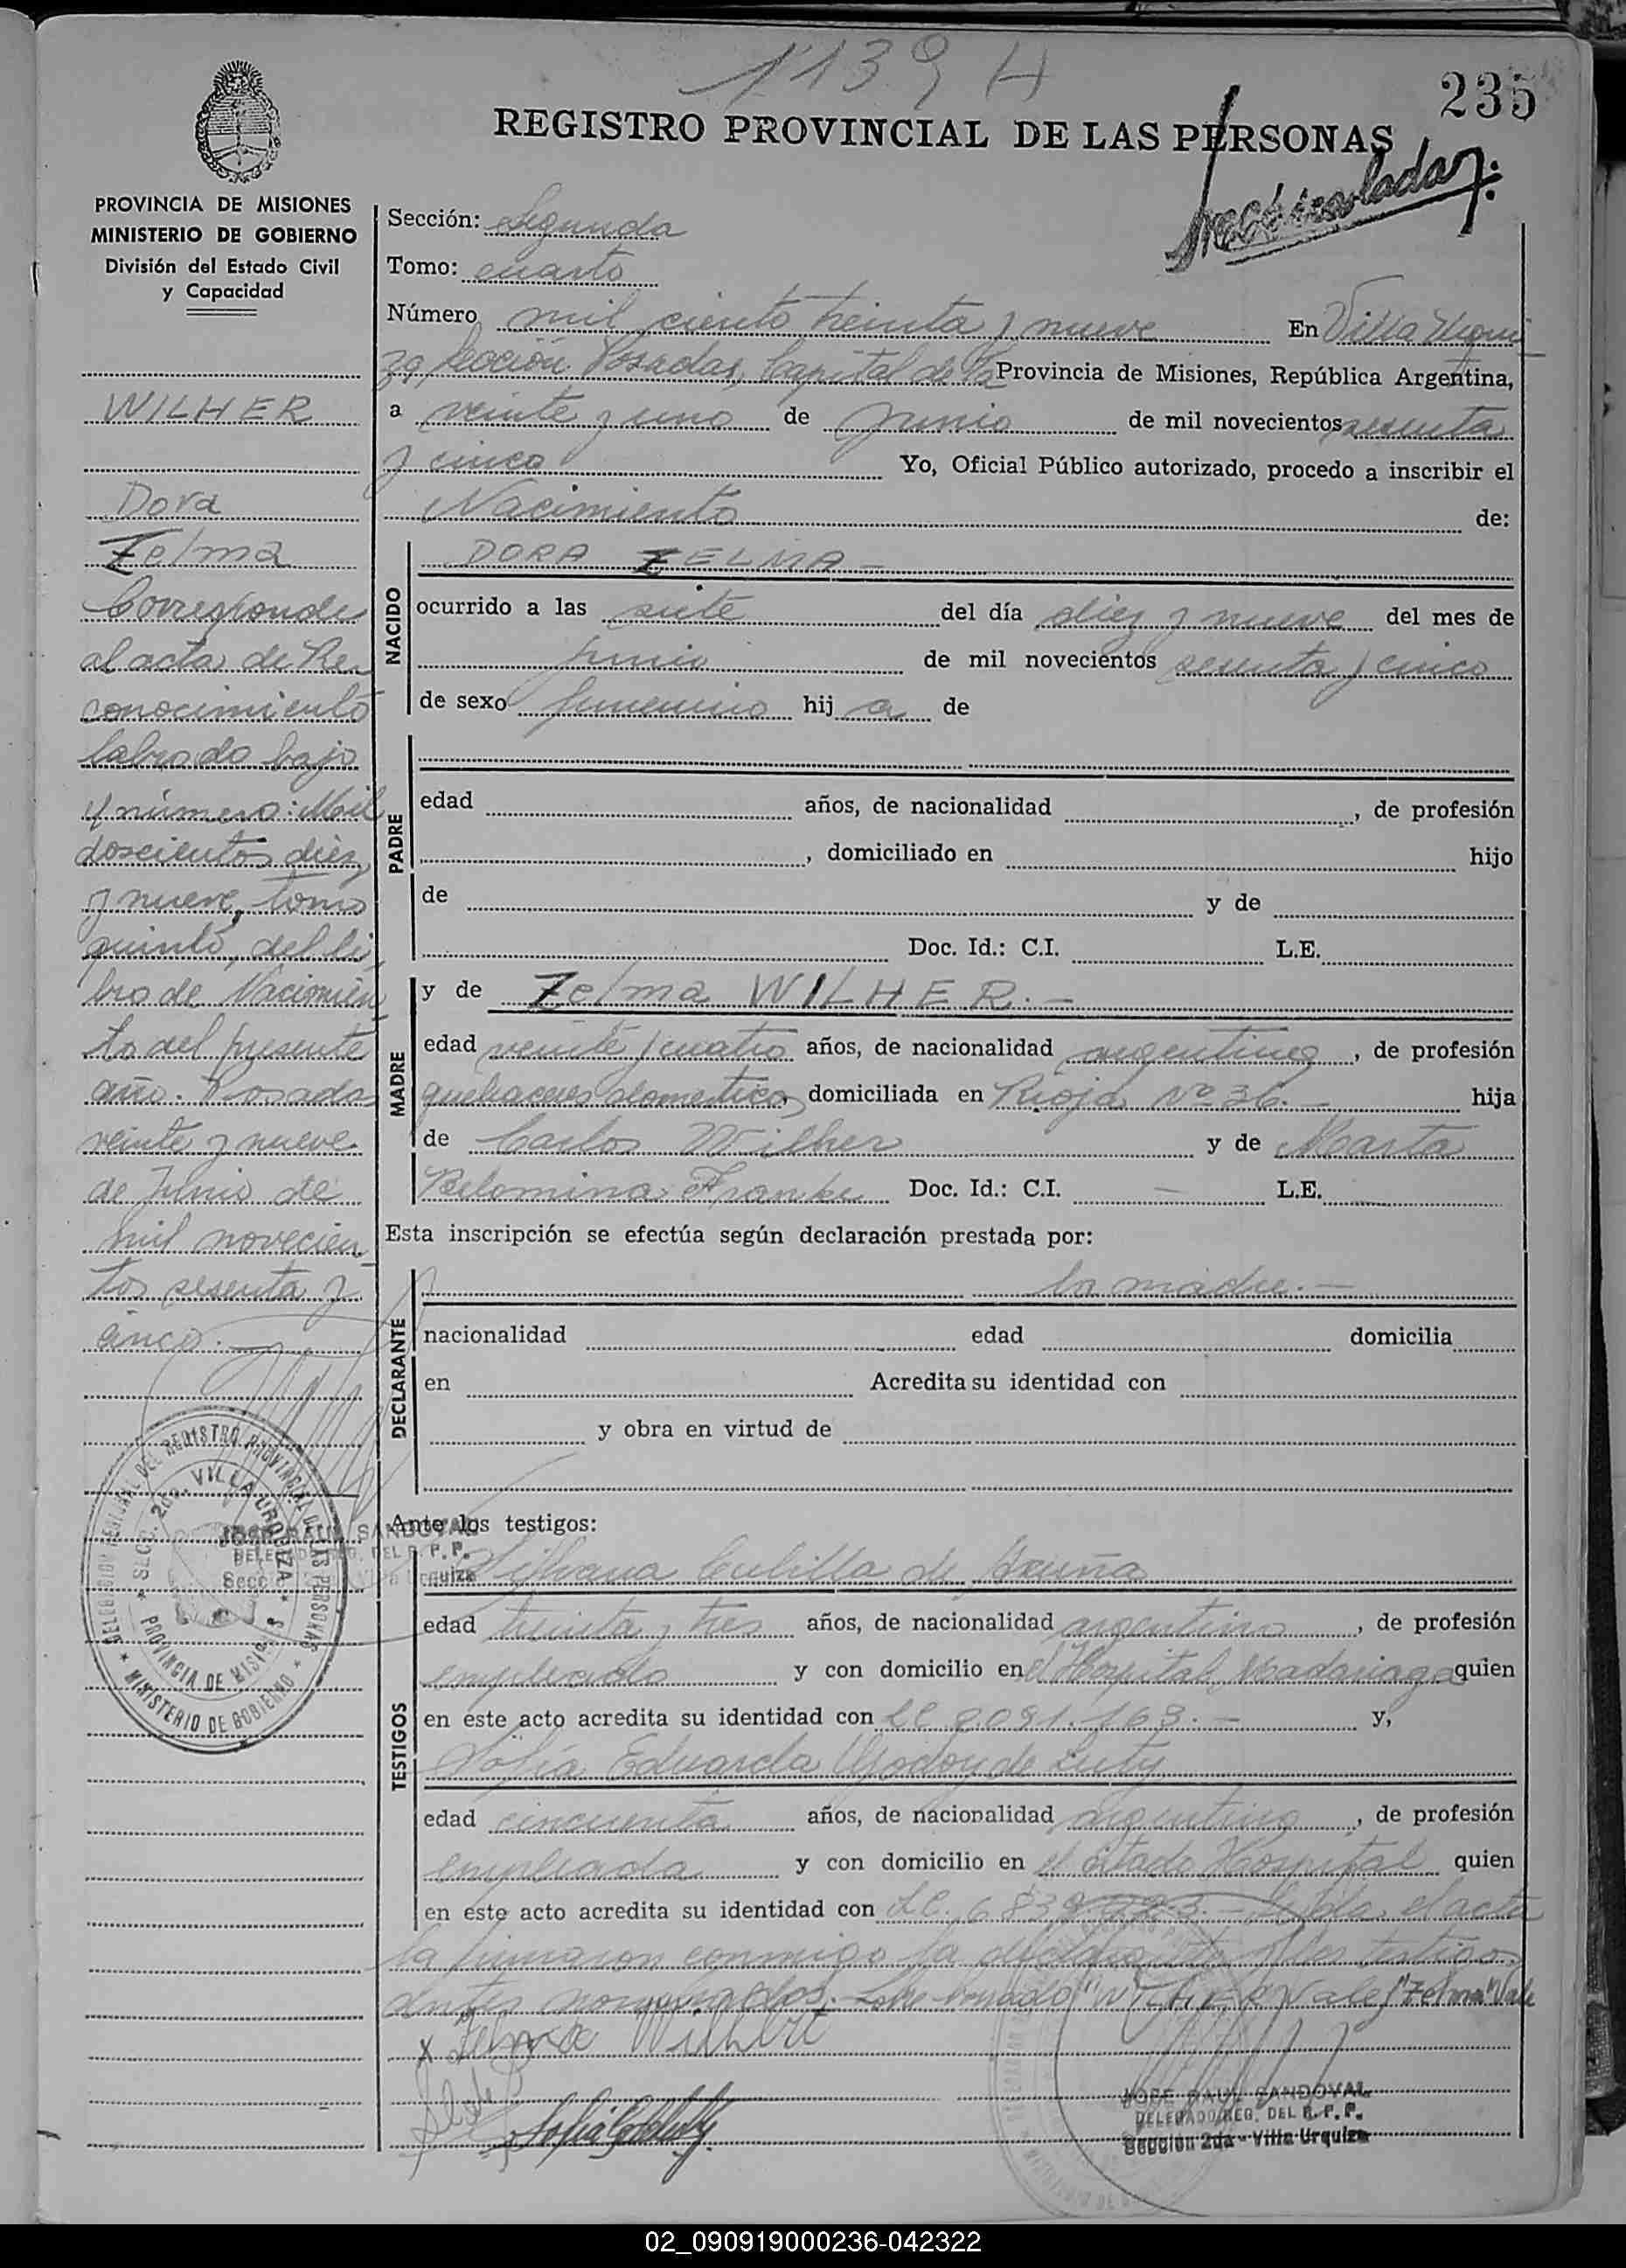 1139 H
235
REGISTRO PROVINCIAL DE LAS PERSONAS
matriculada
PROVINCIA DE MISIONES
MINISTERIO DE GOBIERNO
División del Estado Civil
y Capacidad
WILHER
Dora
Zelma
Corresponde
al acta de Re-
conocimiento
labrado bajo
número: Mil
doscientos diez
y nueve, tomo
quinto, del li-
bro de Nacimien-
to del presente
año. Posadas
veinte y nueve
de Junio de
mil novecien-
tos sesenta y
cinco.
Sección: Segunda
Tomo: cuarto
Número mil ciento treinta y nueve En Villa Urqui-
za, Sección Posadas, Capital de la Provincia de Misiones, República Argentina,
a veinte y uno de junio de mil novecientos sesenta
y cinco Yo, Oficial Público autorizado, procedo a inscribir el
Nacimiento de:
NACIDO
DORA ZELMA -
ocurrido a las siete del día diez y nueve del mes de
junio de mil novecientos sesenta y cinco
de sexo femenino hij a de
PADRE
edad años, de nacionalidad , de profesión
, domiciliado en hijo
de y de
Doc. Id.: C.I. L.E.
MADRE
y de Zelma WILHER. -
edad veinte y cuatro años, de nacionalidad argentina, de profesión
quehaceres domesticos, domiciliada en Rioja Nº 36. - hija
de Carlos Wilher y de Marta
Belomina Franke Doc. Id.: C.I. - L.E.
Esta inscripción se efectúa según declaración prestada por:
DECLARANTE
la madre. -
nacionalidad edad domicilia
en Acredita su identidad con
y obra en virtud de
Ante los testigos:
TESTIGOS
Silvana Cubilla de Acuña
edad treinta y tres años, de nacionalidad argentina, de profesión
empleada y con domicilio en el Hospital Madariaga quien
en este acto acredita su identidad con LC 2.091.163. - y,
Sofía Eduarda Godoy de Luty
edad cincuenta años, de nacionalidad argentina, de profesión
empleada y con domicilio en el citado Hospital quien
en este acto acredita su identidad con L.C. 6.839. - Leída el acta
la firmaron conmigo la declarante y los testigos
antes nombrados. Sobre borrado "WILHER" Vale y "Zelma" Vale
x Zelma Wilhert
DELEGACION REGIONAL DEL REGISTRO PROVINCIAL DE LAS PERSONAS
SECC. 2da. VILLA URQUIZA
PROVINCIA DE MISIONES
MINISTERIO DE GOBIERNO
JOSE RAUL SANDOVAL
DELEGADO REG. DEL R. P. P.
Sección 2da - Villa Urquiza
JOSE RAUL SANDOVAL
DELEGADO REG. DEL R. P. P.
Sección 2da - Villa Urquiza
02_090919000236-042322